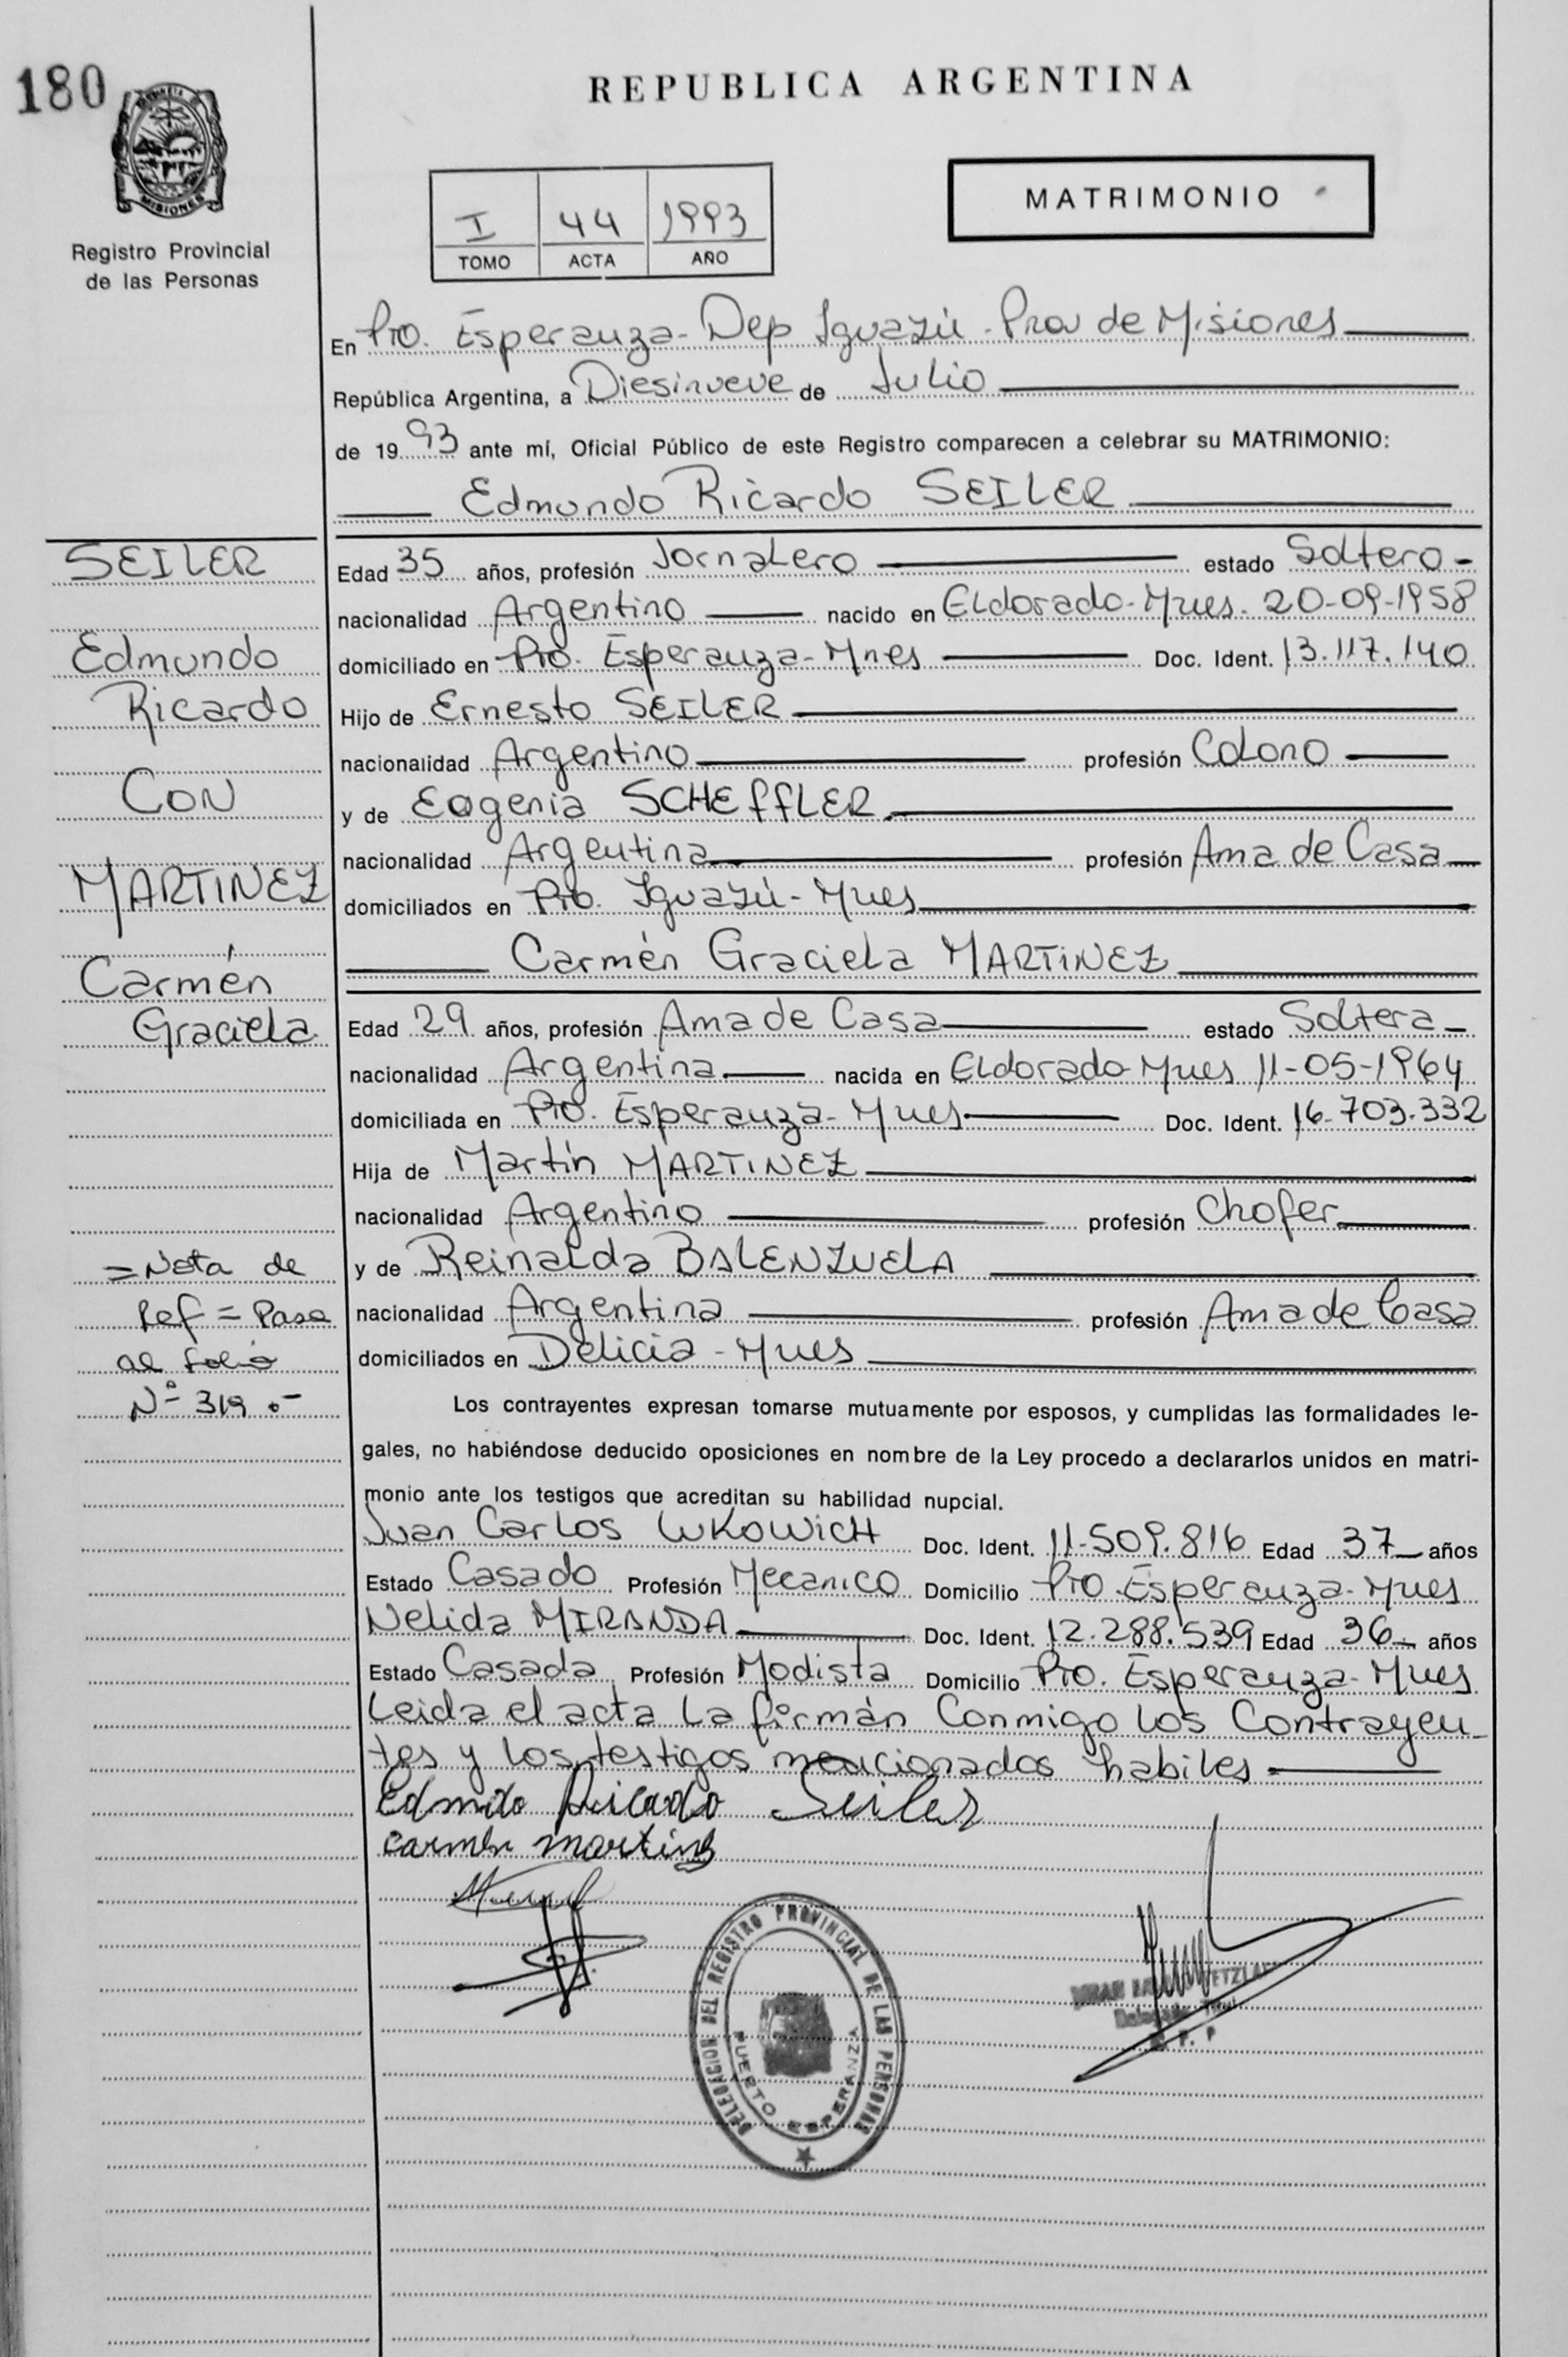 180
REPUBLICA ARGENTINA
MISIONES
Registro Provincial
de las Personas
I 44 1993
TOMO ACTA AÑO
MATRIMONIO
En Pto. Esperanza - Dep Iguazú - Prov de Misiones
República Argentina, a Diesinueve de Julio
de 1993 ante mí, Oficial Público de este Registro comparecen a celebrar su MATRIMONIO:
Edmundo Ricardo SEILER
SEILER
Edmundo
Ricardo
CON
MARTINEZ
Carmén
Graciela
= Nota de
Ref = Pase
al folio
Nº 319.-
Edad 35 años, profesión Jornalero estado Soltero-
nacionalidad Argentino nacido en Eldorado-Mnes. 20-09-1958
domiciliado en Pto. Esperanza-Mnes Doc. Ident. 13.117.140
Hijo de Ernesto SEILER
nacionalidad Argentino profesión Colono
y de Eugenia SCHEFFLER
nacionalidad Argentina profesión Ama de Casa
domiciliados en Pto. Iguazú-Mnes
Carmén Graciela MARTINEZ
Edad 29 años, profesión Ama de Casa estado Soltera
nacionalidad Argentina nacida en Eldorado-Mnes 11-05-1964
domiciliada en Pto. Esperanza-Mnes Doc. Ident. 16.703.332
Hija de Martín MARTINEZ
nacionalidad Argentino profesión Chofer
y de Reinalda BALENZUELA
nacionalidad Argentina profesión Ama de Casa
domiciliados en Delicia-Mnes
Los contrayentes expresan tomarse mutuamente por esposos, y cumplidas las formalidades le-
gales, no habiéndose deducido oposiciones en nombre de la Ley procedo a declararlos unidos en matri-
monio ante los testigos que acreditan su habilidad nupcial.
Juan Carlos LUKOWICH Doc. Ident. 11.509.816 Edad 37 años
Estado Casado Profesión Mecanico Domicilio Pto. Esperanza-Mnes
Nelida MIRANDA Doc. Ident. 12.288.539 Edad 36 años
Estado Casada Profesión Modista Domicilio Pto. Esperanza-Mnes
Leida el acta la firmán Conmigo los Contrayen-
tes y los testigos mencionados habiles
Edmundo Ricardo Seiler
carmen martinez
DELEGACION DEL REGISTRO PROVINCIAL DE LAS PERSONAS
PUERTO ESPERANZA